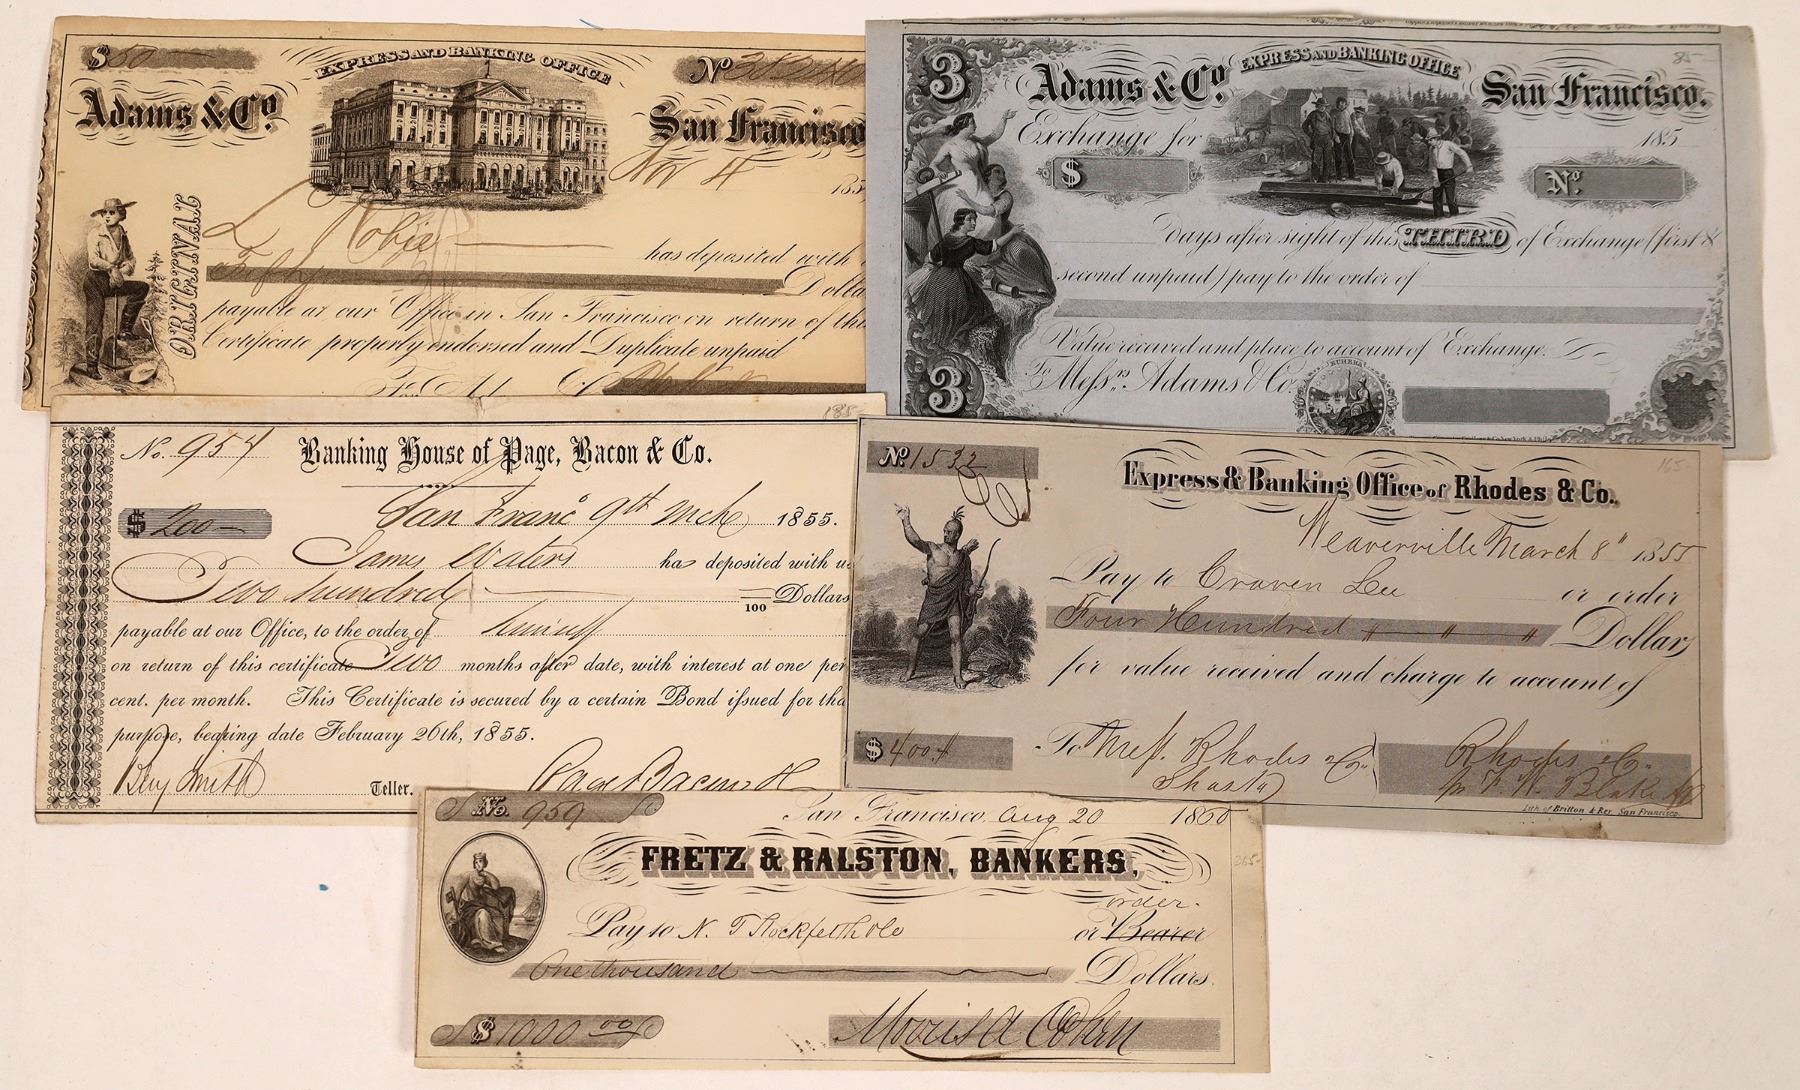 $50
EXPRESS AND BANKING OFFICE
No
Adams & Co.
San Francisco
Nov 4 185
ORIGINAL
L Robie
has deposited with
Fifty Dolla
payable at our Office in San Francisco on return of this
Certificate properly endorsed and Duplicate unpaid
3
85-
Adams & Co. EXPRESS AND BANKING OFFICE San Francisco.
Exchange for 185
$ No.
days after sight of this THIRD of Exchange (first &
second unpaid) pay to the order of
Value received and place to account of Exchange.
To Messrs. Adams & Co.
EUREKA
3
185-
No. 957 Banking House of Page, Bacon & Co.
San Franco 9th Mch 1855.
$ 200
James Waters has deposited with us
Two hundred /100 Dollars
payable at our Office, to the order of himself
on return of this certificate Two months after date, with interest at one per
cent. per month. This Certificate is secured by a certain Bond issued for tha
purpose, bearing date February 26th, 1855.
Benj Smith Teller. Page Bacon & Co
No 1532
165-
Express & Banking Office of Rhodes & Co.
Weaverville March 8" 1855
Pay to Craven Lee or order
Four Hundred " " " Dollars
for value received and charge to account of
$400.
To Mess. Rhodes & Co. Rhodes & Co.
Shasta W. Blake
Lith of Britton & Rey, San Francisco.
No. 959 San Francisco, Aug 20 1860
265-
FRETZ & RALSTON, BANKERS,
order.
Pay to N. T. or Bearer
One thousand Dollars.
$1000 00 Morris A Cohen